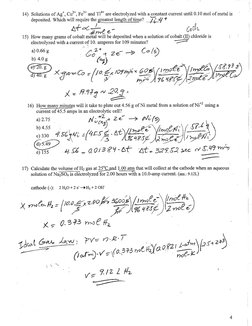 14) Solutions of Ag⁺, Cu²⁺, Fe³⁺ and Ti⁴⁺ are electrolyzed with a constant current until 0.10 mol of metal is
deposited. Which will require the greatest length of time? Ti⁴⁺
15) How many grams of cobalt metal will be deposited when a solution of cobalt (II) chloride is
electrolyzed with a current of 10. amperes for 109 minutes?
a) 0.66 g
b) 4.0 g
c) 20. g
d) 40. g
Co²⁺(aq) + 2e⁻ → Co(s)
x gram Co =
x = 19.97g ≈ 20 g.
16) How many minutes will it take to plate out 4.56 g of Ni metal from a solution of Ni²⁺ using a
current of 45.5 amps in an electrolytic cell?
a) 2.75
b) 4.55
c) 330
d) 5.49
e) 155
Ni²⁺(aq) + 2e⁻ → Ni(s)
4.56 = 0.01384 · Δt Δt = 329.52 sec ≈ 5.49 min
17) Calculate the volume of H₂ gas at 25°C and 1.00 atm that will collect at the cathode when an aqueous
solution of Na₂SO₄ is electrolyzed for 2.00 hours with a 10.0-amp current. (ans.: 9.12L)
cathode (-): 2 H₂O + 2 e⁻ → H₂ + 2 OH⁻
x mol H₂ =
x = 0.373 mol H₂
Ideal Gas Law: PV = n·R·T
(1atm)·V = (0.373 mol H₂)(0.0821 L·atm/mol·K)(25+273)
V = 9.12 L H₂
4